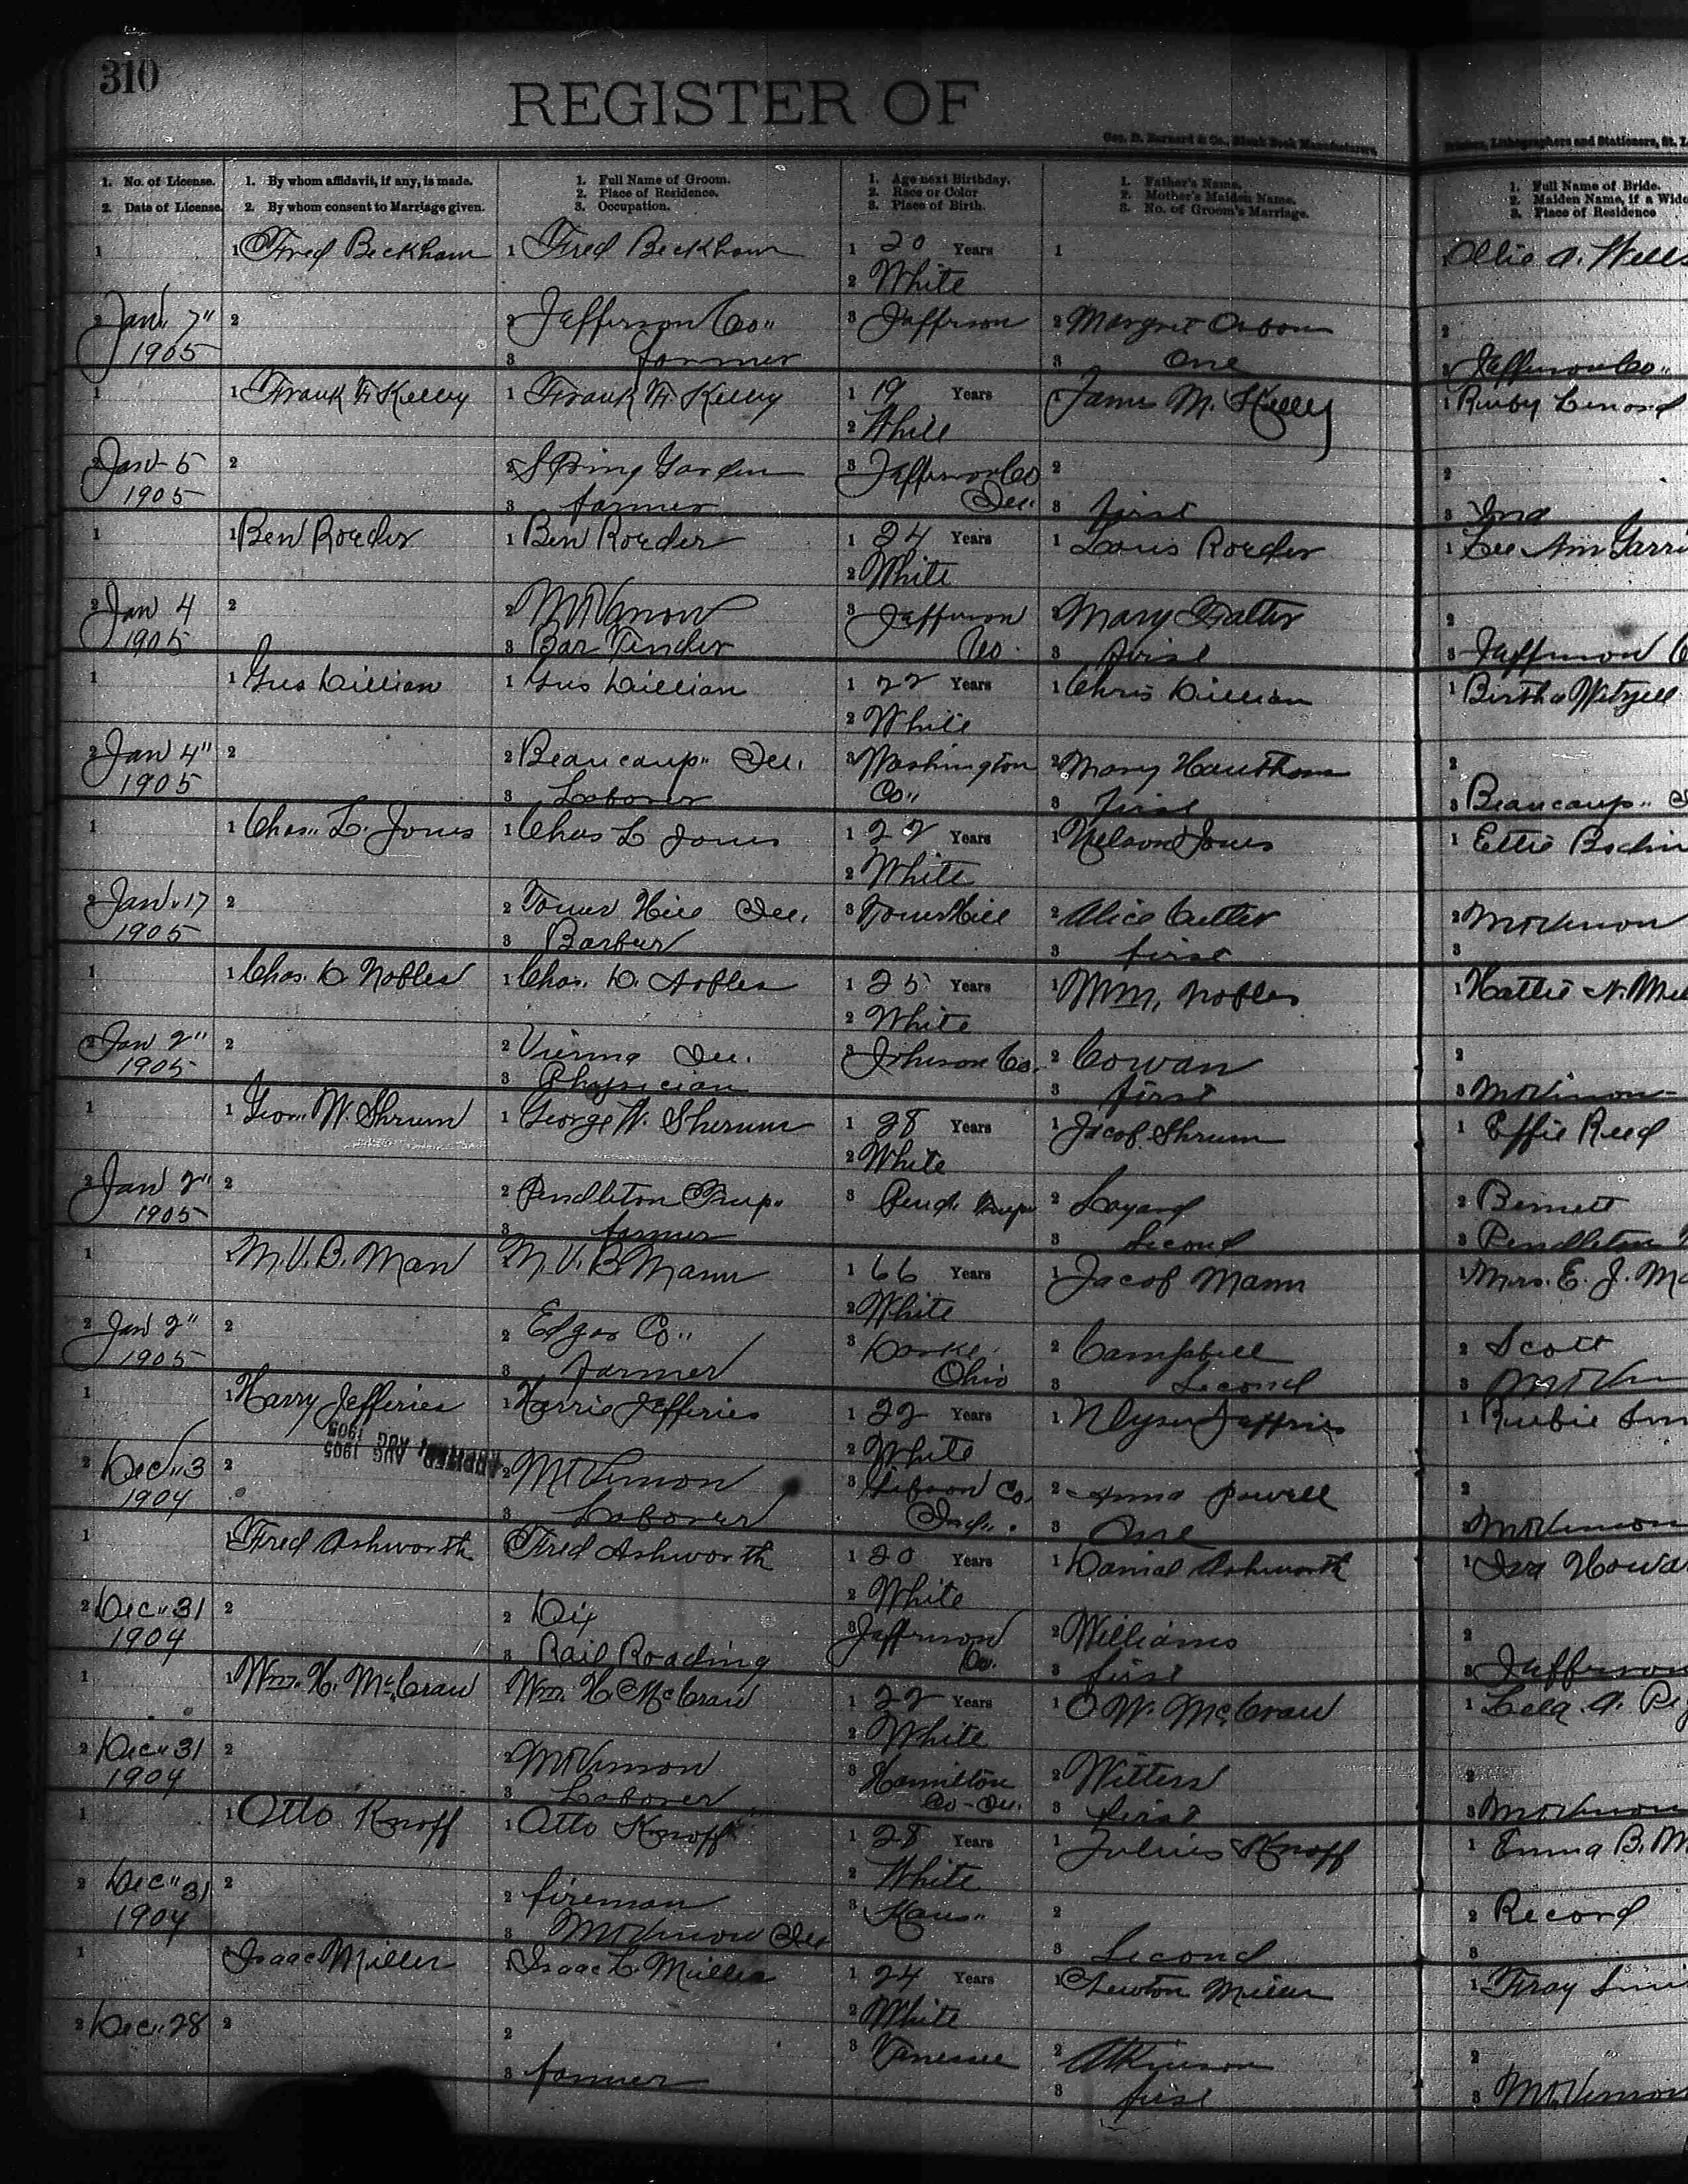 310
REGISTER OF
Geo. D. Barnard & Co., Blank Book Manufacturers,
Printers, Lithographers and Stationers, St. L
1. No. of License.
2. Date of License.
1. By whom affidavit, if any, is made.
2. By whom consent to Marriage given.
1. Full Name of Groom.
2. Place of Residence.
3. Occupation.
1. Age next Birthday.
2. Race or Color
3. Place of Birth.
1. Father's Name.
2. Mother's Maiden Name.
3. No. of Groom's Marriage.
1. Full Name of Bride.
2. Maiden Name, if a Wido
3. Place of Residence
1 1 Fred Beckham 1 Fred Beckham 1 20 Years 1 Ollie A. Wells
2 White
2 Jan" 7" 2 2 Jefferson Co" 3 Jefferson 2 Margret Osborn 2
1905 3 farmer 3 One 3 Jefferson Co"
1 1 Frank F. Kelley 1 Frank F. Kelley 1 19 Years 1 James M. Kelley 1 Ruby
2 White
2 Jan 5 2 2 Spring Garden 3 Jefferson Co 2 2
1905 3 farmer Ill. 3 first 3 Ind
1 1 Ben Roeder 1 Ben Roeder 1 24 Years 1 Louis Roeder 1 Lee Ann Garri
2 White
2 Jan 4 2 2 Mt Vernon 3 Jefferson 2 Mary 2
1905 3 Bar Tender Co. 3 first 3 Jefferson C
1 1 Gus Dillian 1 Gus Dillian 1 22 Years 1 Chris Dillian 1 Bertha Witzell
2 White
2 Jan 4" 2 2 Beaucaup" Ill. 3 Washington 2 Mary Hawthorn 2
1905 3 Laborer Co" 3 first 3 Beaucaup"
1 1 Chas" L. Jones 1 Chas L Jones 1 22 Years 1 Nelson Jones 1 Ettie
2 White
2 Jan. 17 2 2 Tower Hill Ill. 3 Tower Hill 2 Alice Cutler 2 Mt Vernon
1905 3 Barber 3 first 3
1 1 Chas. D Nobles 1 Chas. D. Nobles 1 25 Years 1 Wm. Nobles 1 Hattie N. Mil
2 White
2 Jan 2" 2 2 Vienna Ill. 3 Johnson Co. 2 Cowan 2
1905 3 Physician 3 first 3 Mt Vernon
1 1 Geo" W. Shrum 1 George W. Sherum 1 28 Years 1 Jacob Shrum 1 Effie Reed
2 White
2 Jan 2" 2 2 Pendleton Twp" 3 Pend. Twp" 2 2 Bennett
1905 3 farmer 3 Second 3 Pendleton
1 1 M. V. B. Man 1 M. V. B Mann 1 66 Years 1 Jacob Mann 1 Mrs. E. J. Ma
2 White
2 Jan 2" 2 2 Edgar Co" 3 Darke 2 Campbell 2 Scott
1905 3 farmer Ohio 3 Second 3 Mt Ver
1 1 Harry Jefferies 1 Harrie Jefferies 1 22 Years 1 1 Rubie
AUG 1905
2 White
2 Dec" 3 2 2 Mt Vernon 3 Gibson Co. 2 Anna Powell 2
1904 3 Laborer Ind". 3 One 3 Mt Vernon
1 1 Fred Ashworth 1 Fred Ashworth 1 20 Years 1 Danial Ashworth 1 Iva Howa
2 White
2 Dec" 31 2 2 Dix 3 Jefferson 2 Williams 2
1904 3 Rail Roading Co. 3 first 3 Jefferson
1 1 Wm. H. McCraw 1 Wm. H. McCraw 1 22 Years 1 O W. McCraw 1 Lela. A.
2 White
2 Dec" 31 2 2 Mt Vernon 3 Hamilton 2 Witters 2
1904 3 Laborer Co - Ill. 3 first 3 Mt Vernon
1 1 Otto Knoff 1 Otto Knoff 1 28 Years 1 Julius Knoff 1 Emma B. M
2 White
2 Dec" 31 2 2 fireman 3 Kans" 2 2 Record
1904 3 Mt Vernon Ill 3 Second 3
1 1 Isaac Miller 1 Isaac L. Miller 1 24 Years 1 Newton Miller 1
2 White
2 Dec" 28 2 2 3 2 Atkinson 2
3 farmer 3 first 3 Mt. Vernon